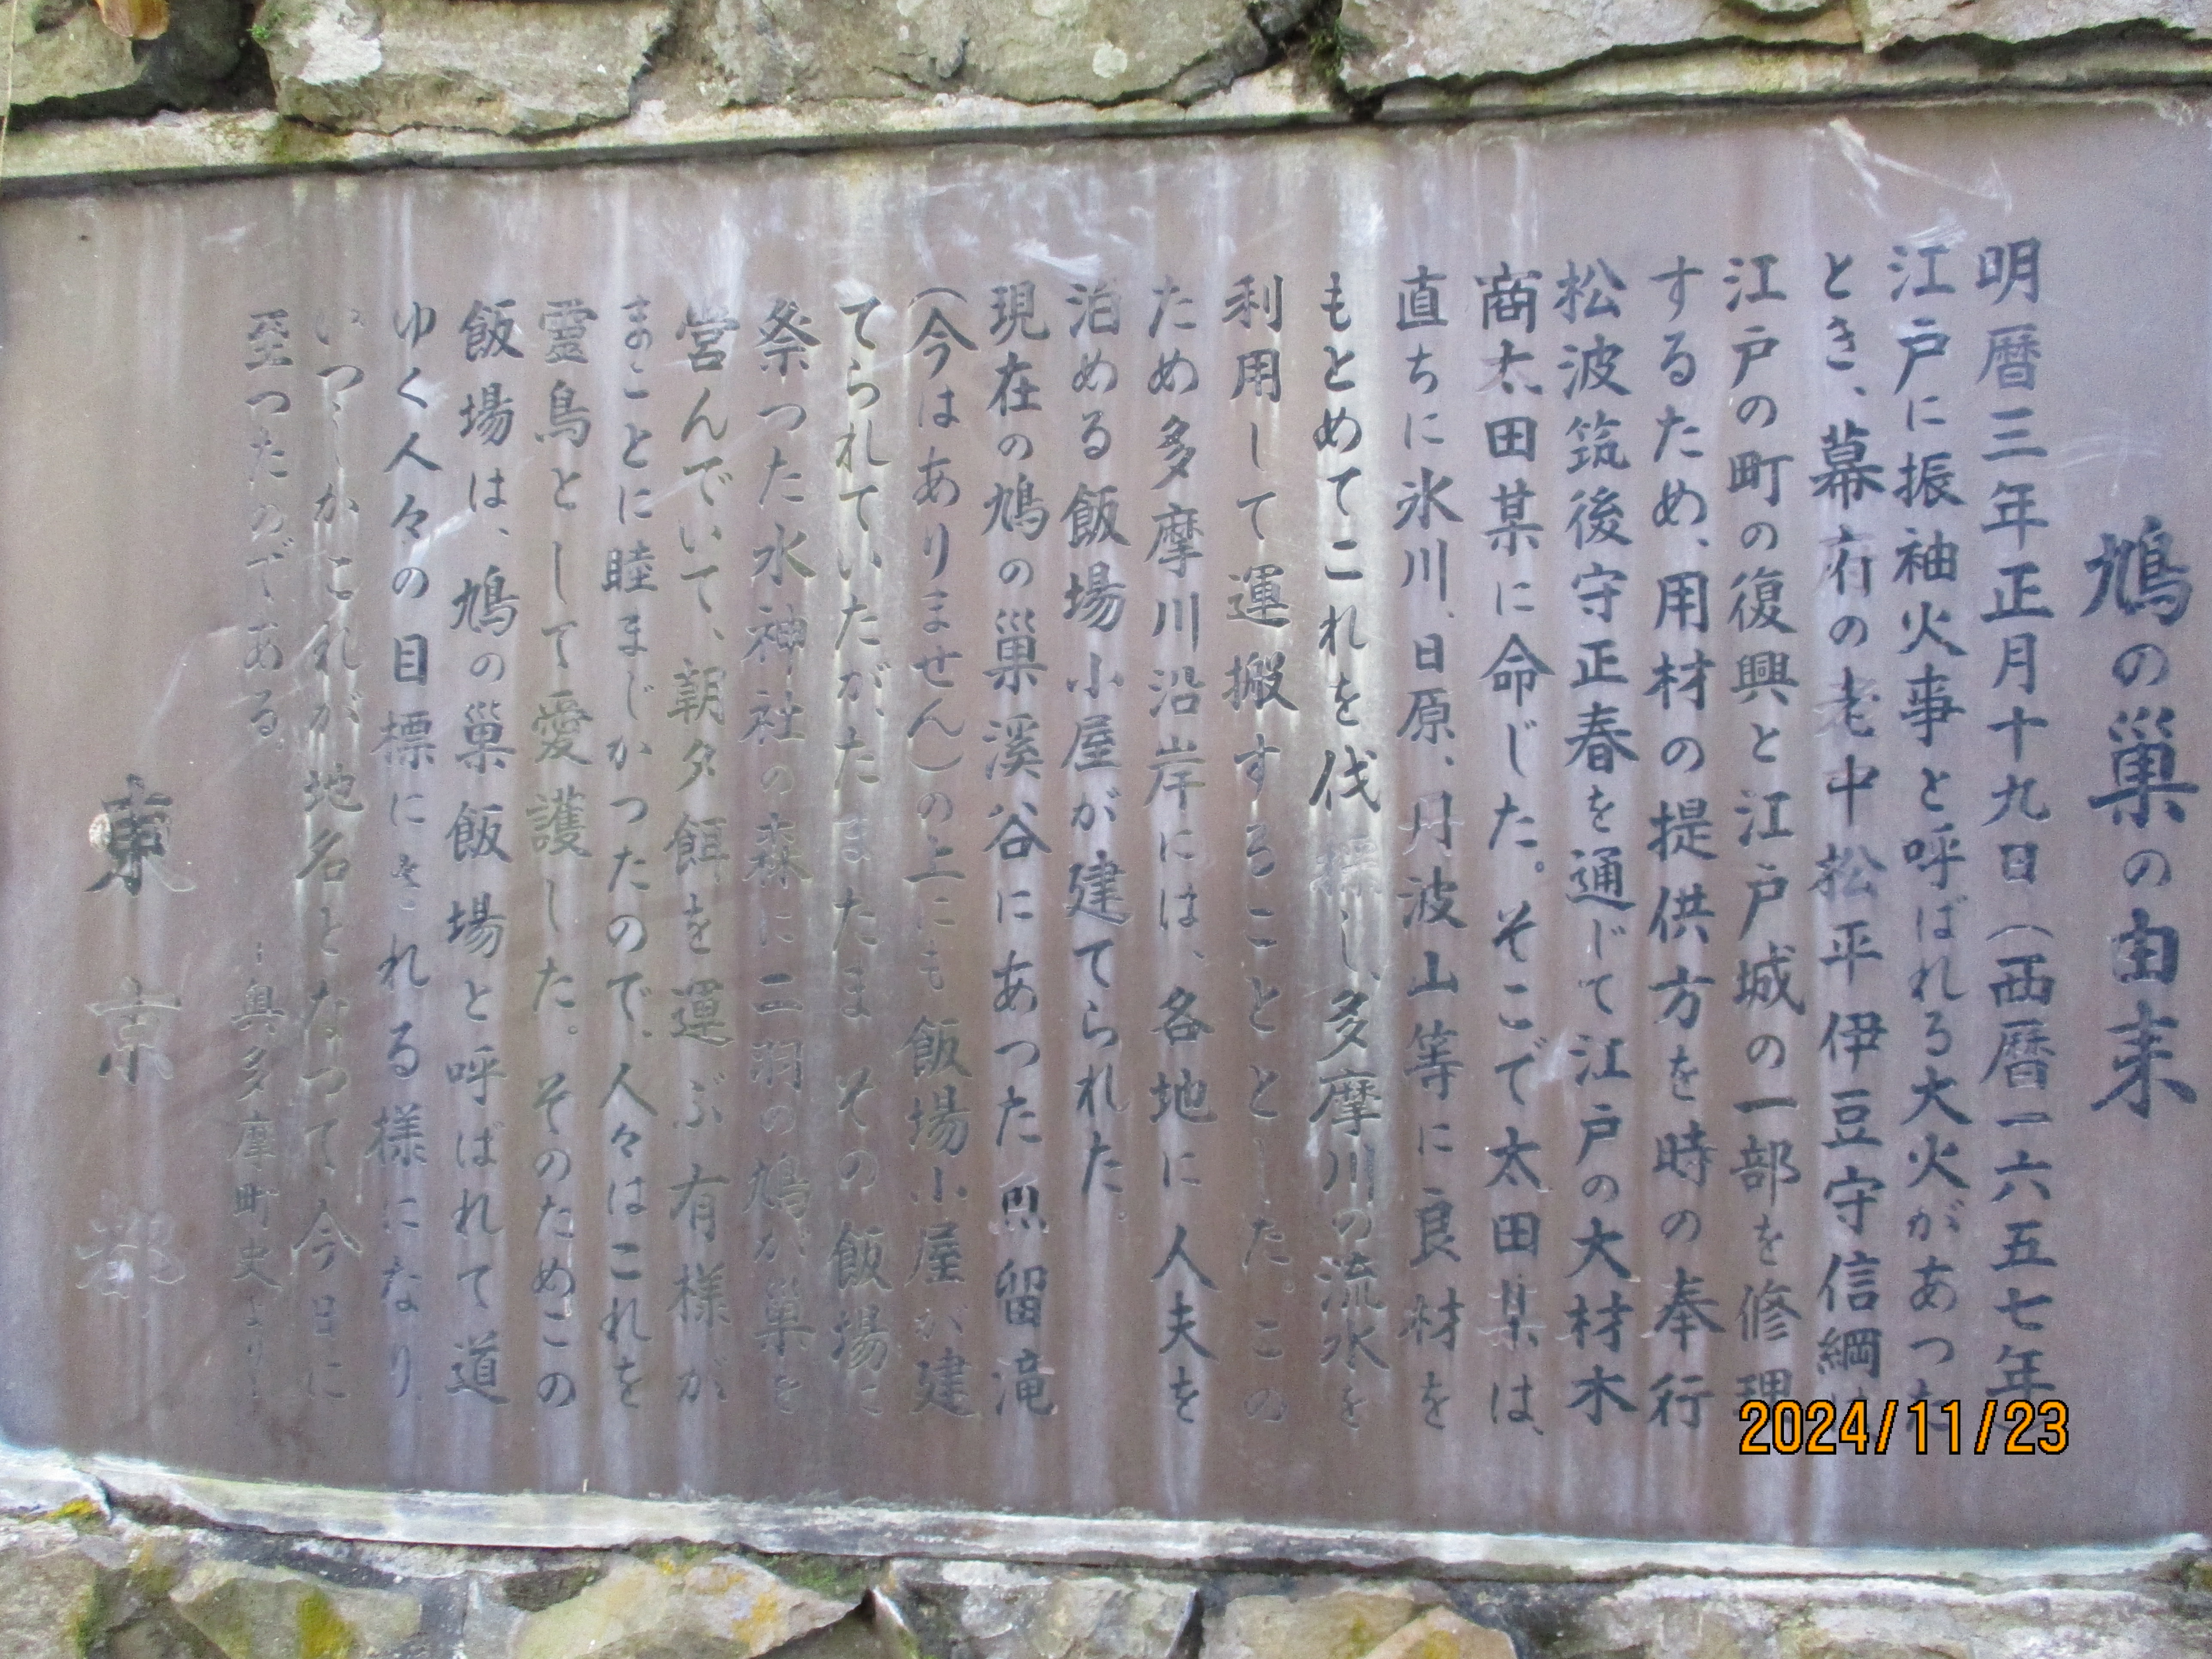 鳩の巣の由来
明暦三年正月十九日(西暦一六五七年
江戸に振袖火事と呼ばれる大火があつた
とき、幕府の老中松平伊豆守信綱は
江戸の町の復興と江戸城の一部を修理
するため、用材の提供方を時の奉行
松波筑後守正春を通じて江戸の大材木
商太田某に命じた。そこで太田某は、
直ちに氷川、日原、丹波山等に良材を
もとめてこれを伐採し、多摩川の流水を
利用して運搬することとした。この
ため多摩川沿岸には、各地に人夫を
泊める飯場小屋が建てられた。
現在の鳩の巣溪谷にあつた魚留滝
(今はありません)の上にも飯場小屋が建
てられていたが、たまたまその飯場に
祭つた水神社の森に二羽の鳩が巣を
営んでいて、朝夕餌を運ぶ有様が
まことに睦まじかつたので、人々はこれを
霊鳥として愛護した。そのためこの
飯場は、鳩の巣飯場と呼ばれて道
ゆく人々の目標にされる様になり、
いつしかこれが地名となつて今日に
至つたのである。
奥多摩町史より
東京都
2024/11/23